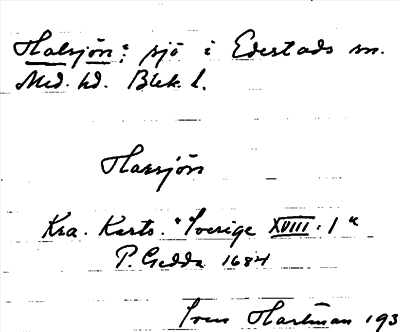 Halsjön: sjö i Edestads sn.
Med. hd. Blek. l.
Harsjön
Kra. Karto. "Sverige XVIII: 1"
P. Gedda 1684
Sven Hartman 193